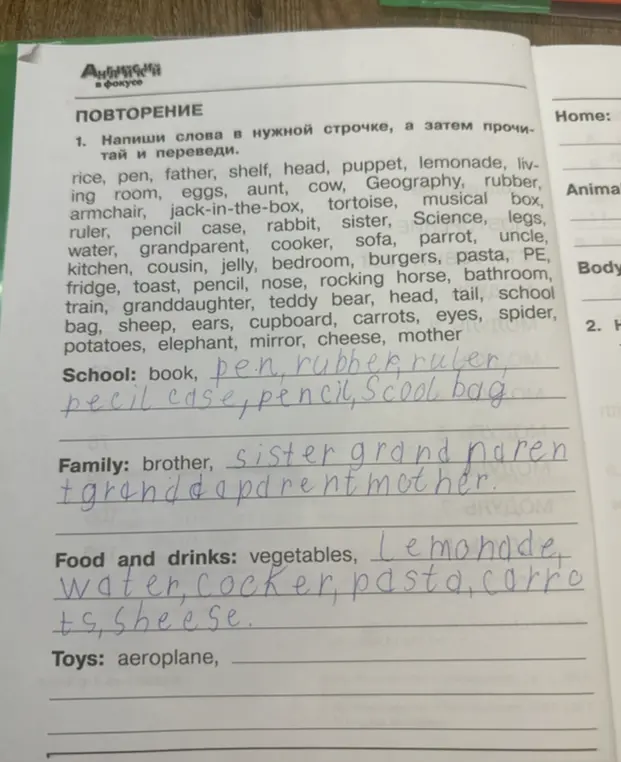 Английский
в фокусе
ПОВТОРЕНИЕ
1. Напиши слова в нужной строчке, а затем прочи-
тай и переведи.
rice, pen, father, shelf, head, puppet, lemonade, liv-
ing room, eggs, aunt, cow, Geography, rubber,
armchair, jack-in-the-box, tortoise, musical box,
ruler, pencil case, rabbit, sister, Science, legs,
water, grandparent, cooker, sofa, parrot, uncle,
kitchen, cousin, jelly, bedroom, burgers, pasta, PE,
fridge, toast, pencil, nose, rocking horse, bathroom,
train, granddaughter, teddy bear, head, tail, school
bag, sheep, ears, cupboard, carrots, eyes, spider,
potatoes, elephant, mirror, cheese, mother
School: book, pen, rubber, ruler,
pecil case, pencil, Scool bag
Family: brother, sister grand paren
t mother.
Food and drinks: vegetables, Lemonade,
water, cocker, pasta, carro
ts, sheese.
Toys: aeroplane,
Home:
Anima
Body
2. Н